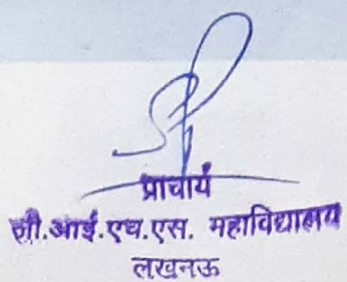 प्राचार्य
सी.आई.एच.एस. महाविद्यालय
लखनऊ